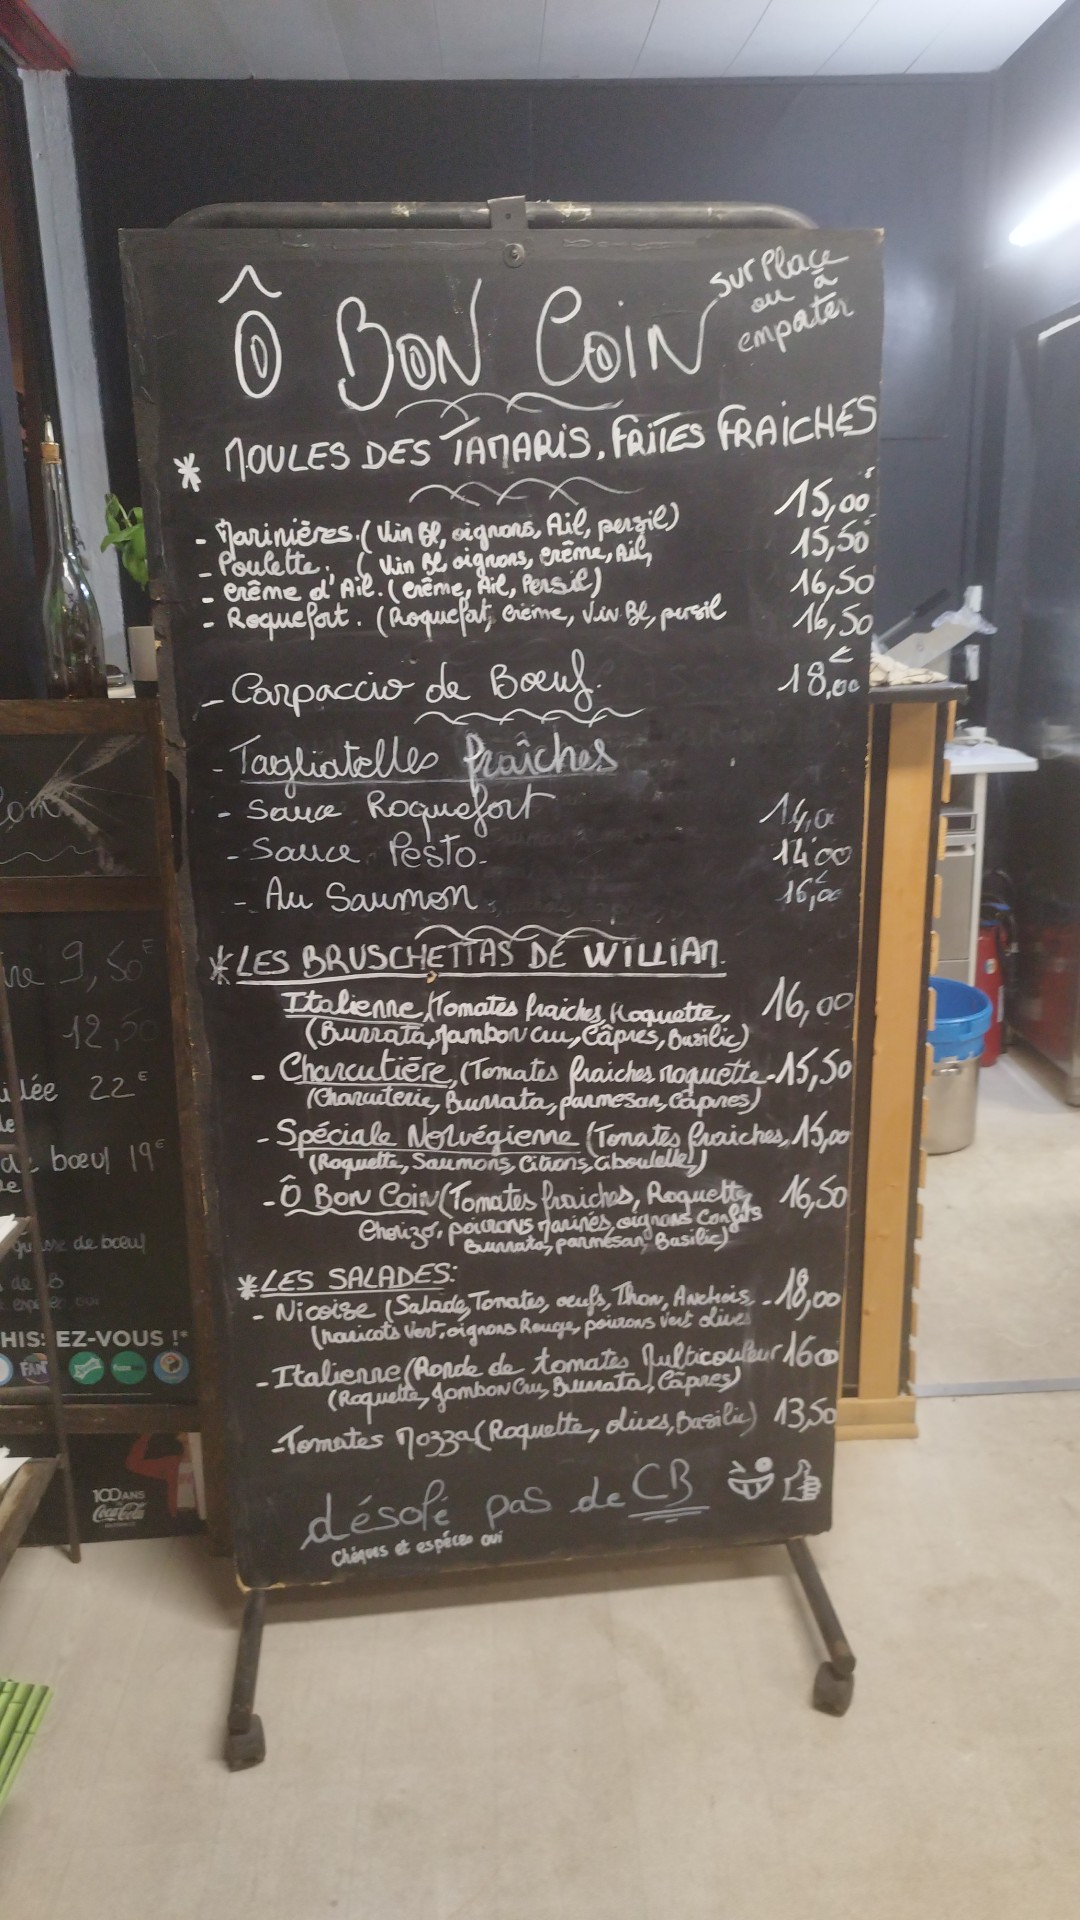 Ô BON COIN
sur Place
ou à
empater
* MOULES DES TAMARIS, FRITES FRAICHES
- Marinières. (Vin Bl, oignons, Ail, persil) 15,00
- Poulette. (Vin Bl, oignons, crême, Ail, 15,50
- crême d'Ail. (Crême, Ail, Persil) 16,50
- Roquefort. (Roquefort, Crême, Vin Bl, persil 16,50
- Carpaccio de Boeuf. 18,00 €
- Tagliatelles fraîches
- Sauce Roquefort 14,0
- Sauce Pesto. 14,00
- Au Saumon 16,00
* LES BRUSCHETTAS DE WILLIAM.
Italienne (Tomates fraiches, Roquette, 16,00
(Burrata, Jambon Cru, Câpres, Basilic)
- Charcutière, (Tomates fraiches roquette - 15,50
(Charcuterie, Burrata, parmesan, Câpres)
- Spéciale Norvégienne (Tomates fraiches, 15,00
(Roquette, Saumons, Citrons, Ciboulette,)
- Ô Bon Coin (Tomates fraiches, Roquette, 16,50
Chorizo, poivrons marinés, oignons Confits
Burrata, parmesan, Basilic)
* LES SALADES:
- Nicoise (Salade, Tomates, oeufs, Thon, Anchois, - 18,00
(haricots Vert, oignons Rouge, poivrons vert olives
- Italienne (Ronde de tomates Multicouleur 16 00
(Roquette, Jambon Cru, Burrata, Câpres)
- Tomates Mozza (Roquette, olives, Basilic) 13,50
désolé pas de CB
Chèques et espéces oui
9,50 €
12,50
22 €
boeuf 19 €
de boeuf
HISSEZ-VOUS !*
FAN
100 ANS
Coca-Cola